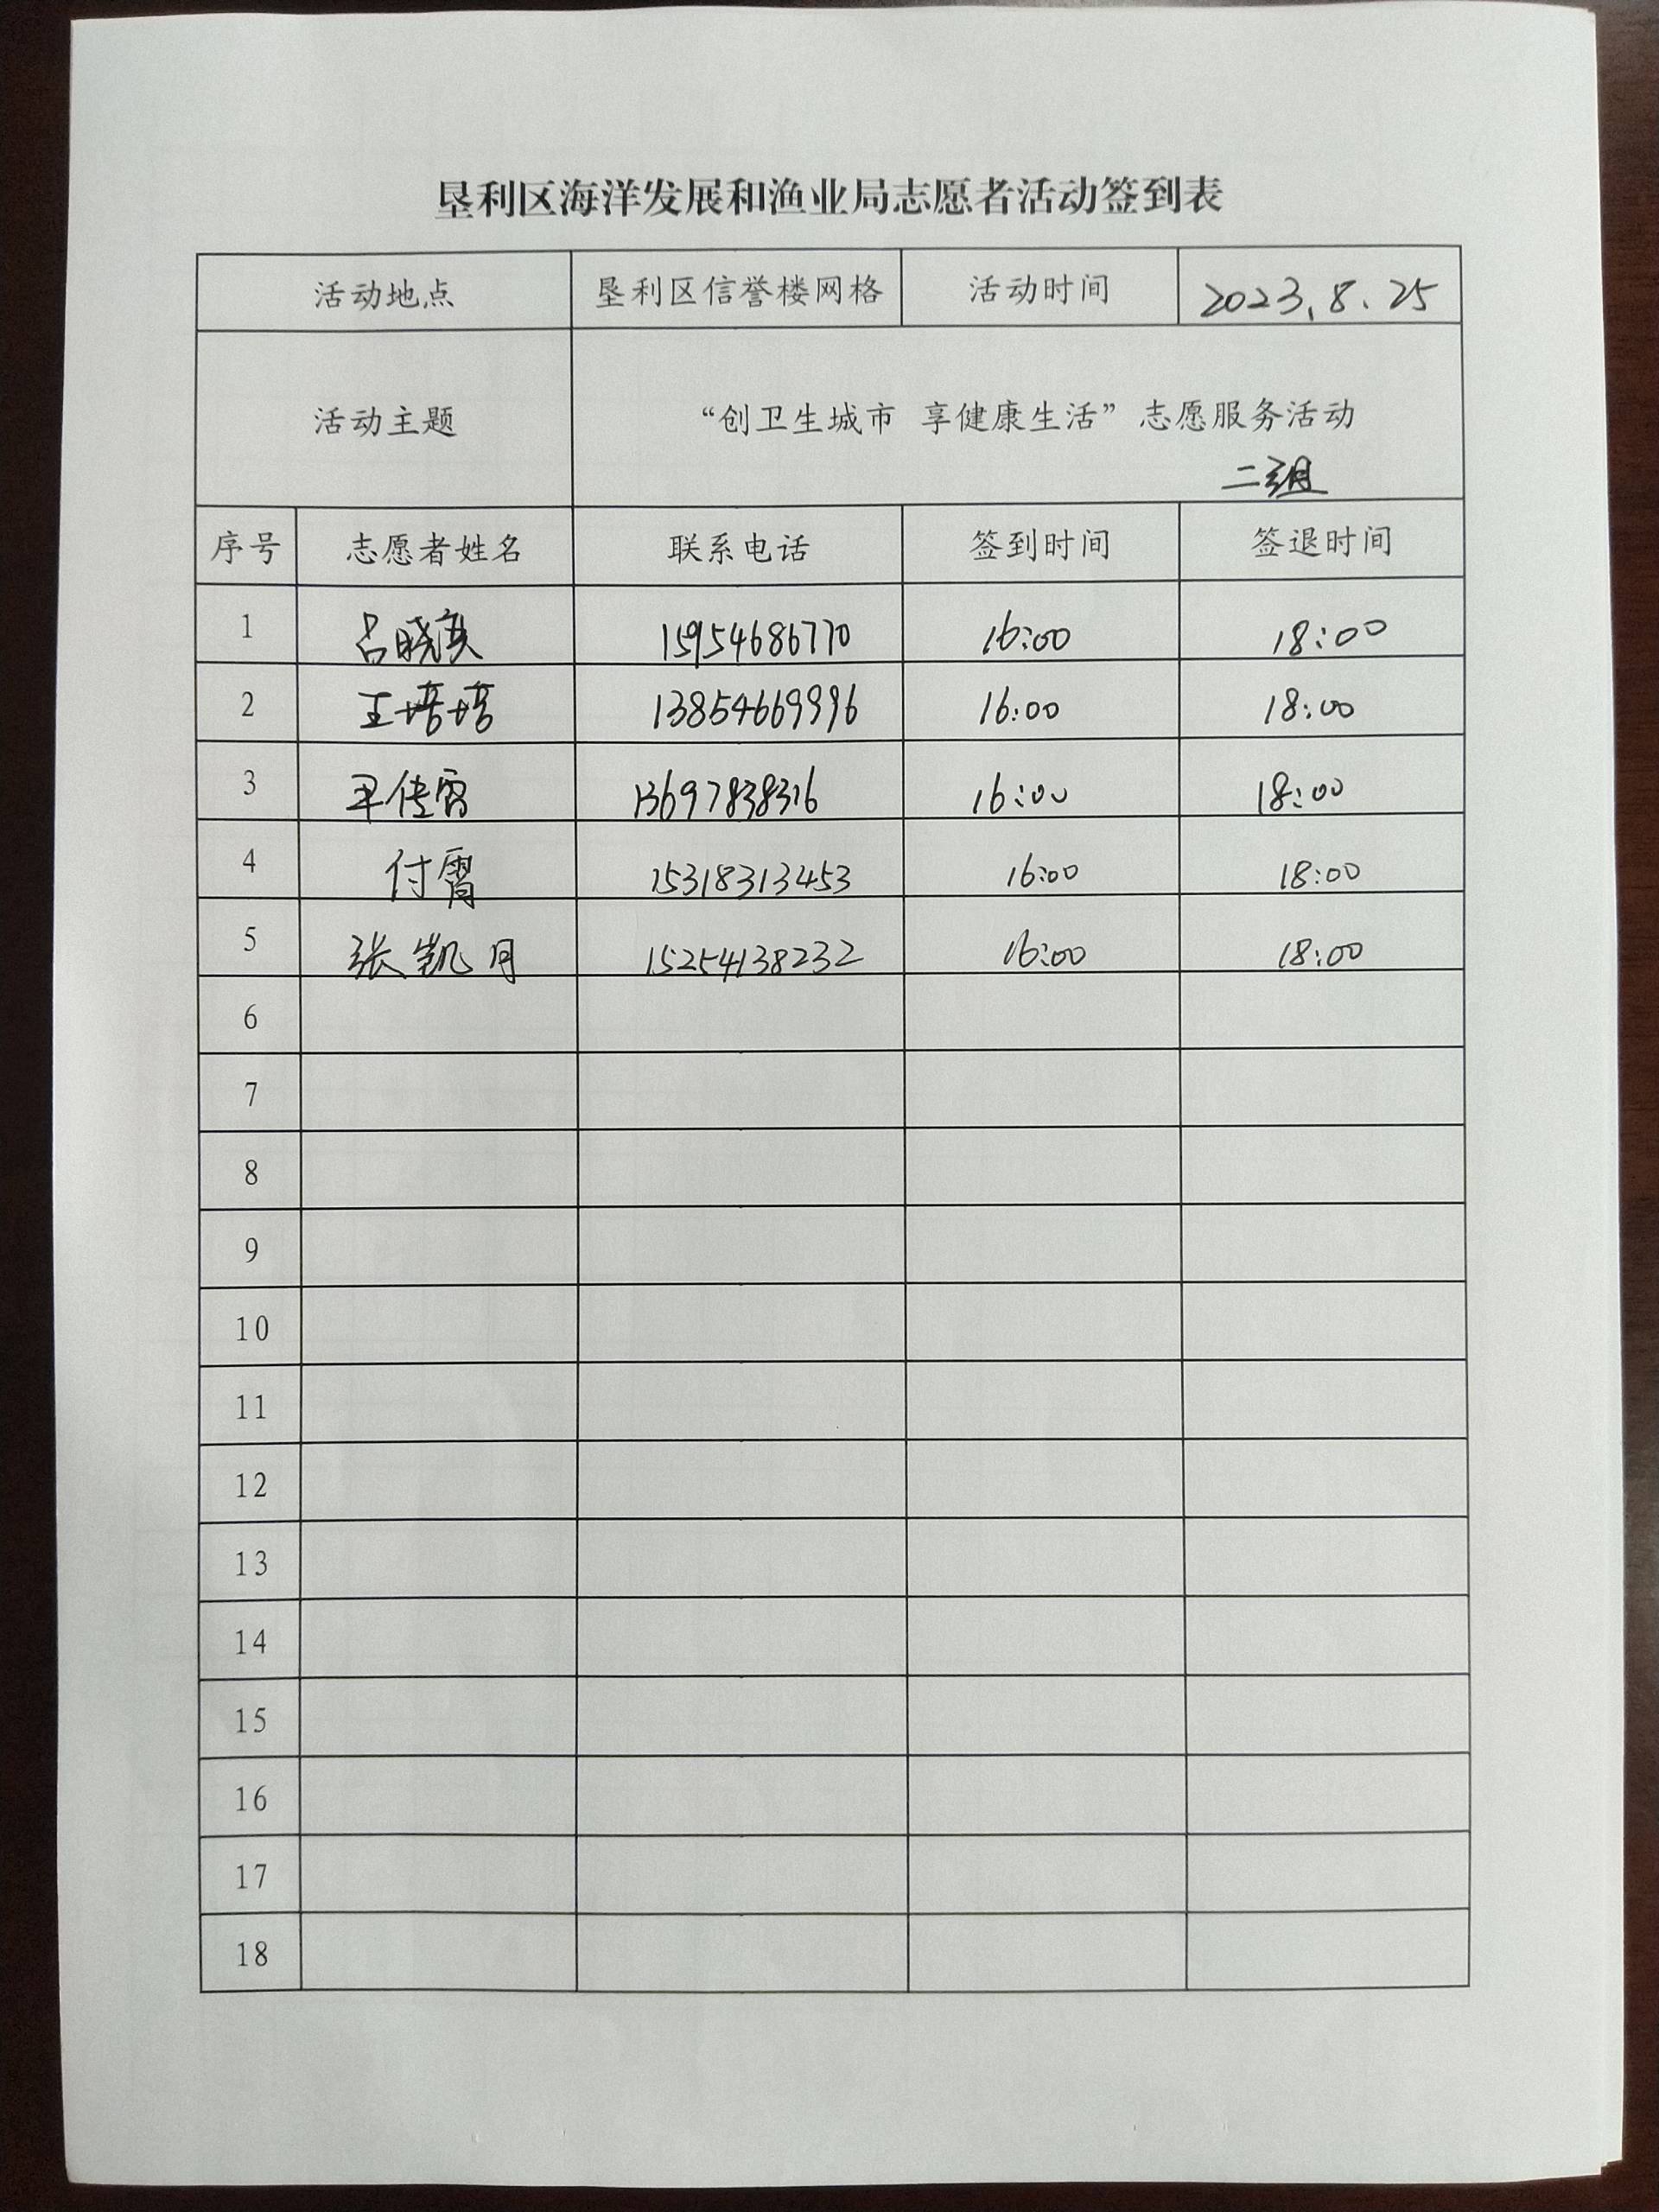 垦利区海洋发展和渔业局志愿者活动签到表
活动地点 垦利区信誉楼网格 活动时间 2023.8.25
活动主题 “创卫生城市 享健康生活”志愿服务活动
二组
序号 志愿者姓名 联系电话 签到时间 签退时间
1 15954686770 16:00 18:00
2 王培培 13854669996 16:00 18:00
3 13697838316 16:00 18:00
4 付霄 15318313453 16:00 18:00
5 张凯月 15254138232 16:00 18:00
6
7
8
9
10
11
12
13
14
15
16
17
18